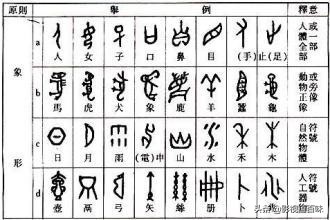 原則 舉例 釋意
象形
a 人體全部或一部
人 女 子 口 鼻 目 (手) 止(足)
b 動物正像或旁像
馬 虎 犬 象 鹿 羊 蠶 龜
c 自然物體符號
日 月 雨 (電)申 山 水 禾 木
d 人工器符號
壺 鬲 弓 矢 絲 册 卜
头条 @影视漫画百味